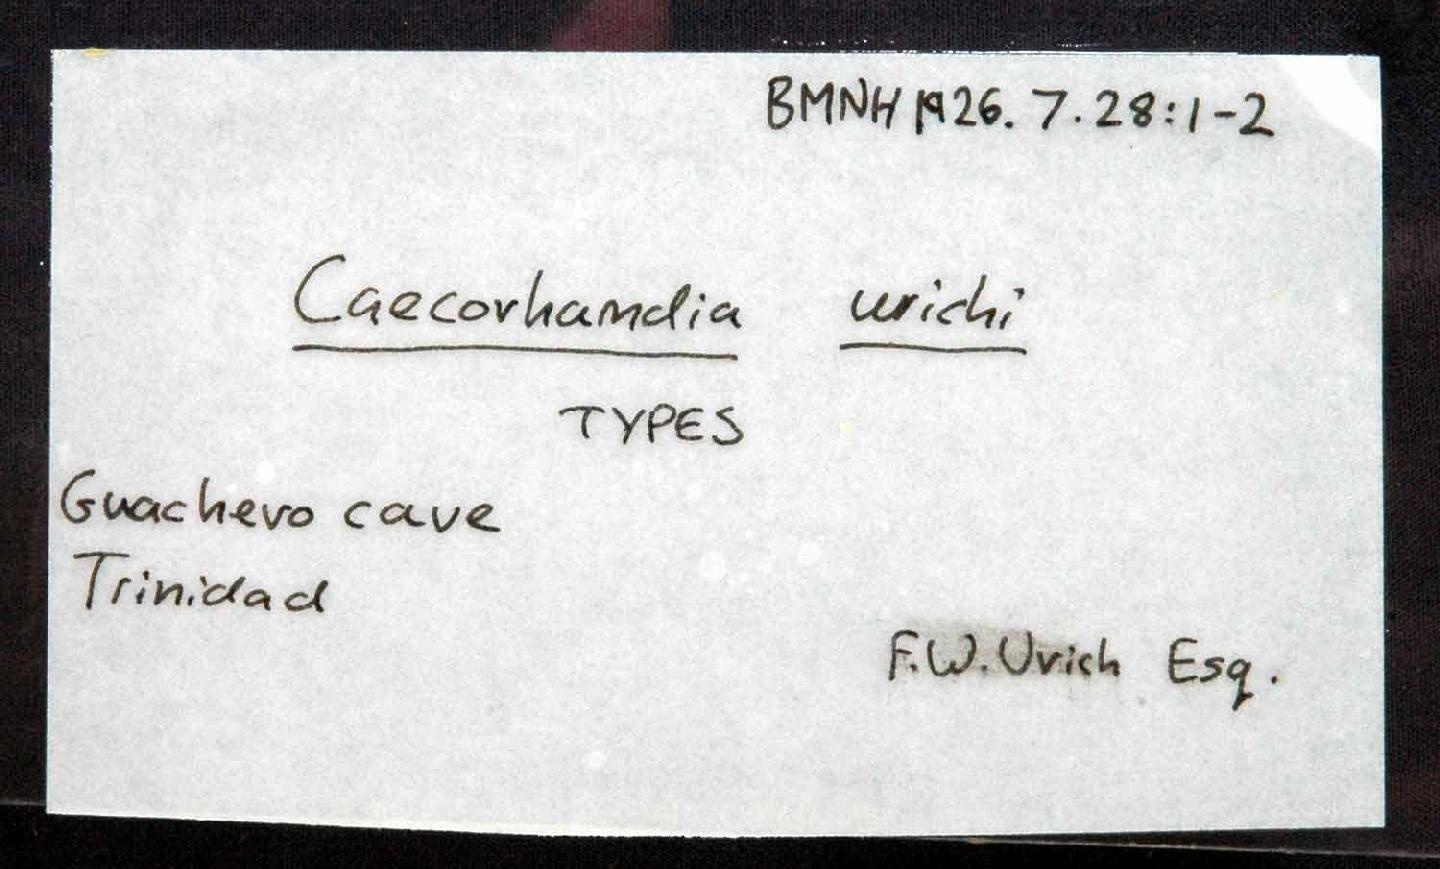 BMNH 1926. 7. 28:1-2
Caecorhamdia urichi
TYPES
Guachero cave
Trinidad
F.W. Urich Esq.